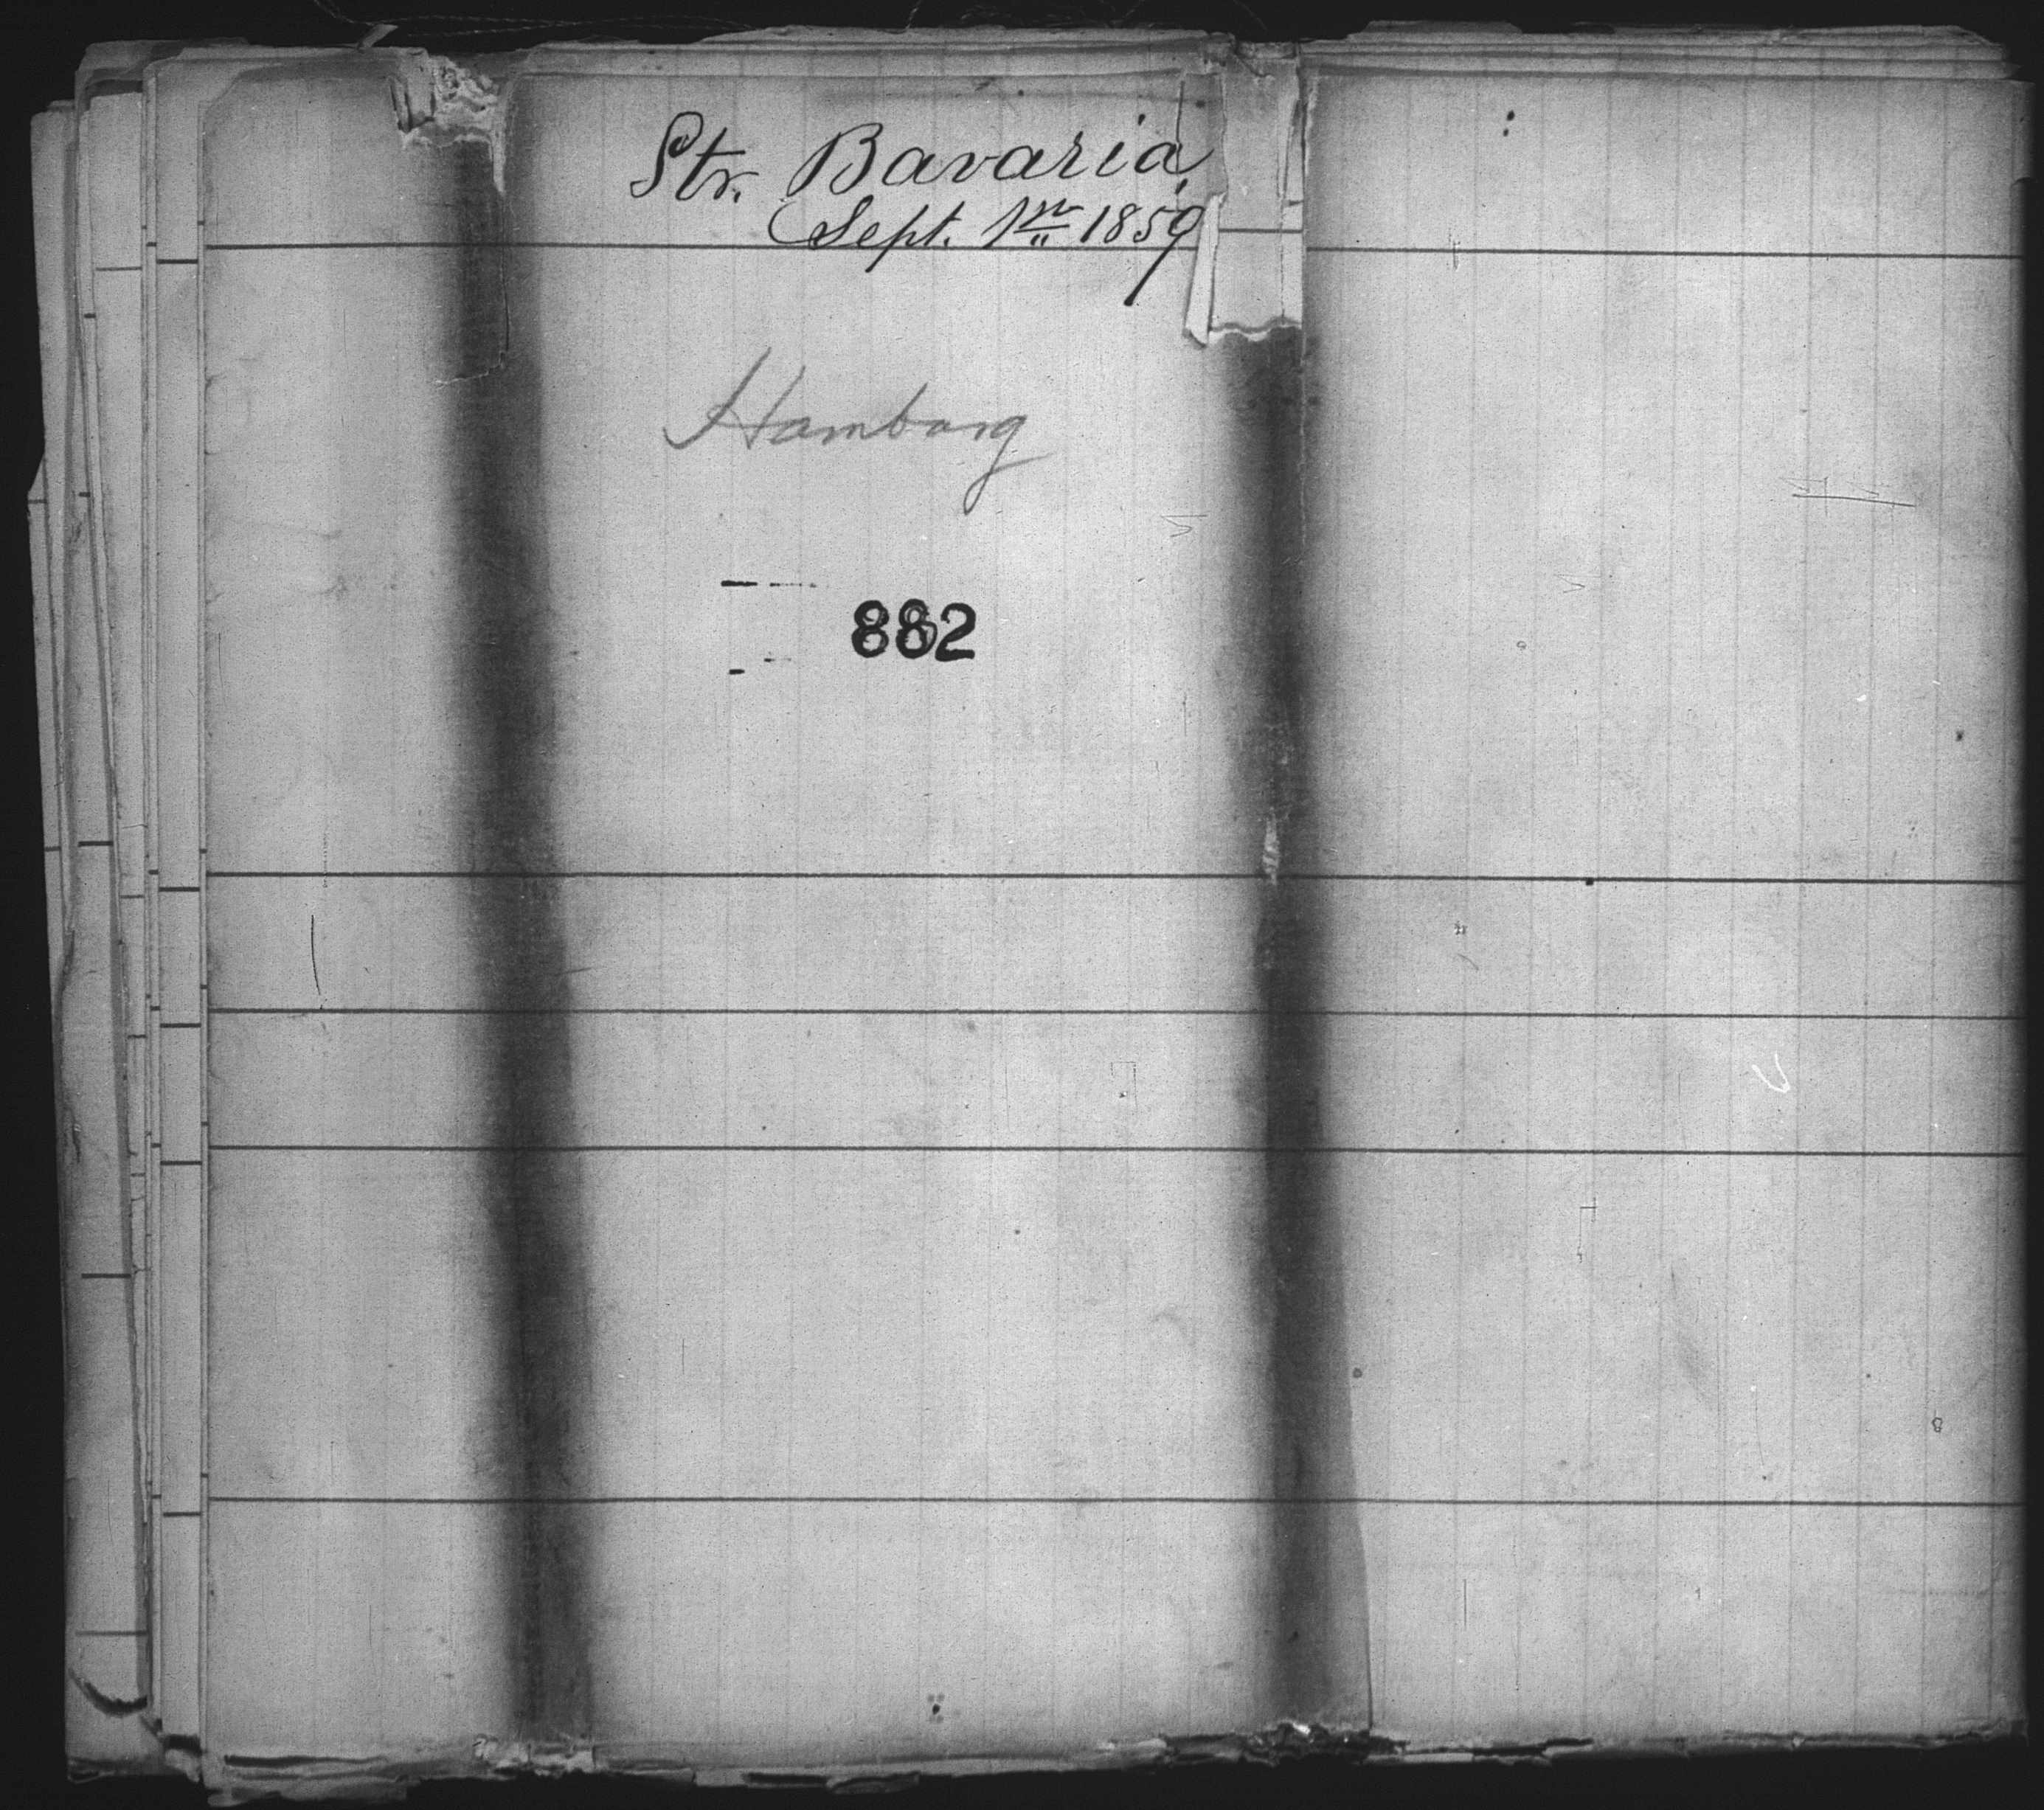 Str. Bavaria
Sept. 1st 1859
Hamburg
882